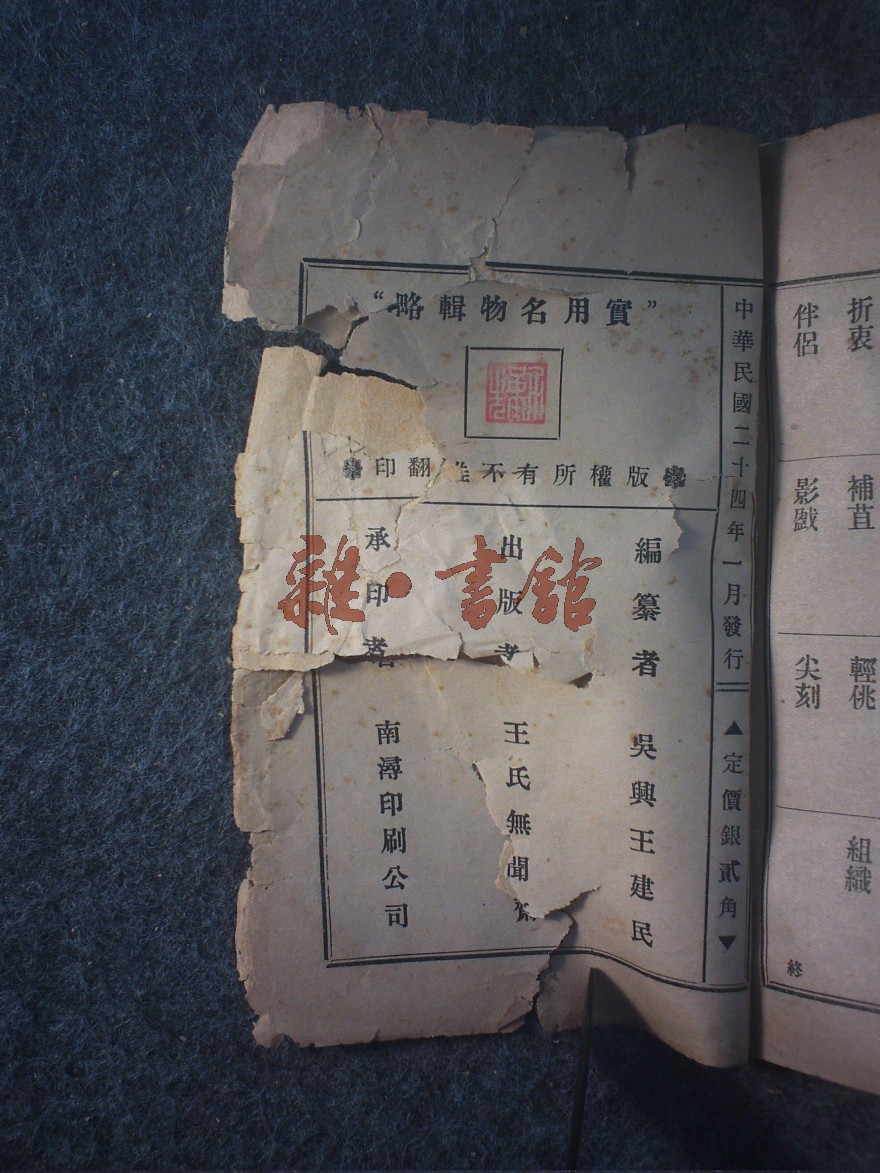 折衷
補苴
輕佻
組織
伴侶
影戲
尖刻
終
中華民國二十四年一月發行 ▲定價銀貳角▼
“實用名物輯略”
版權所有不准翻印
編纂者 吳興王建民
出版者 王氏無聞齋
承印者 南潯印刷公司
雜·書館